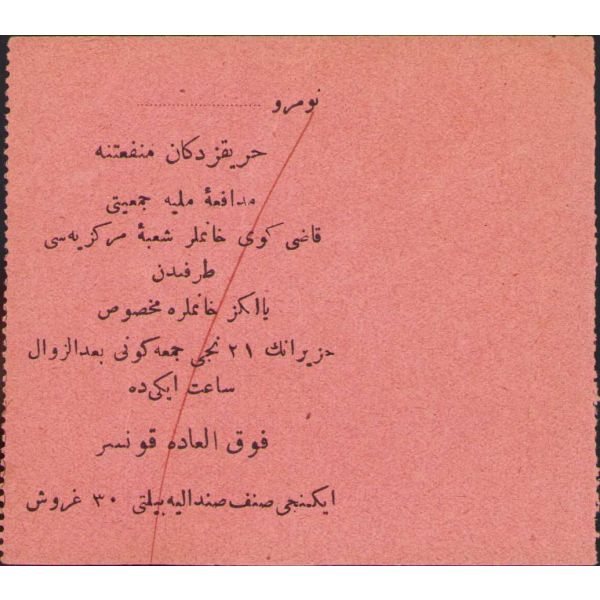 نومرو ....................
حريقزدكان منفعتنه
مدافعهٔ مليه جمعيتى
قاضى كوى خانملر شعبهٔ مركزيه‌سى
طرفندن
يالكز خانملره مخصوص
حزيرانك ٢١ نجى جمعه كونى بعدالزوال
ساعت ايكى‌ده
فوق العاده قونسر
ايكنجى صنف صنداليه بيلتى ٣٠ غروش